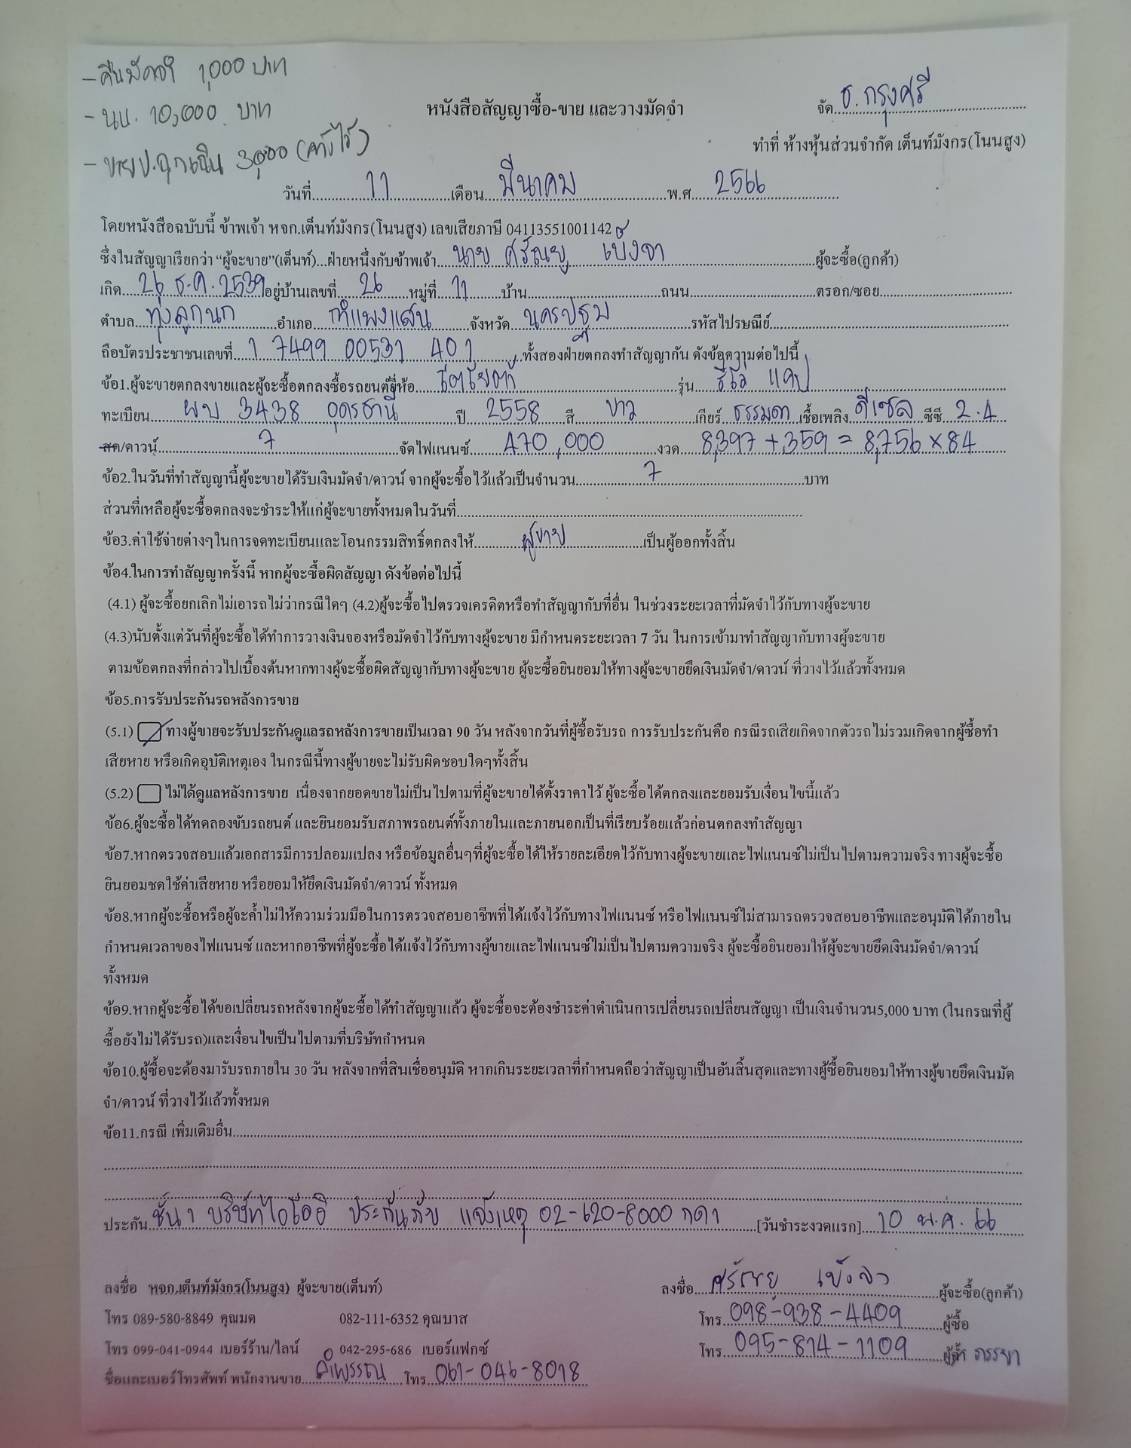 - คืนมัดจำ 1,000 บาท
- นน. 10,000 บาท
- ฉุกเฉิน 3,000
หนังสือสัญญาซื้อ-ขาย และวางมัดจำ
จัด ธ. กรุงศรี
ทำที่ ห้างหุ้นส่วนจำกัด เต็นท์มังกร(โนนสูง)
วันที่ 11 เดือน มีนาคม พ.ศ. 2566
โดยหนังสือฉบับนี้ ข้าพเจ้า หจก.เต็นท์มังกร(โนนสูง) เลขเสียภาษี 04113551001142
ซึ่งในสัญญาเรียกว่า “ผู้จะขาย”(เต็นท์)...ฝ่ายหนึ่งกับข้าพเจ้า นาย ศรัณยู เบ้งจา ผู้จะซื้อ(ลูกค้า)
เกิด 26 ธ.ค. 2539 อยู่บ้านเลขที่ 26 หมู่ที่ 11 บ้าน ถนน ตรอก/ซอย
ตำบล ทุ่งลูกนก อำเภอ กำแพงแสน จังหวัด นครปฐม รหัสไปรษณีย์
ถือบัตรประชาชนเลขที่ 1 7499 00531 40 1 ทั้งสองฝ่ายตกลงทำสัญญากัน ดังข้อความต่อไปนี้
ข้อ1.ผู้จะขายตกลงขายและผู้จะซื้อตกลงซื้อรถยนต์ยี่ห้อ โตโยต้า รุ่น รีโว่ แคป
ทะเบียน ผบ 3438 อุดรธานี ปี 2558 สี ขาว เกียร์ ธรรมดา เชื้อเพลิง ดีเซล ซีซี 2.4
สด/ดาวน์ 7 จัดไฟแนนซ์ 470,000 งวด 8,397 + 359 = 8,756 x 84
ข้อ2.ในวันที่ทำสัญญานี้ผู้จะขายได้รับเงินมัดจำ/ดาวน์ จากผู้จะซื้อไว้แล้วเป็นจำนวน 7 บาท
ส่วนที่เหลือผู้จะซื้อตกลงจะชำระให้แก่ผู้จะขายทั้งหมดในวันที่
ข้อ3.ค่าใช้จ่ายต่างๆในการจดทะเบียนและโอนกรรมสิทธิ์ตกลงให้ ผู้ขาย เป็นผู้ออกทั้งสิ้น
ข้อ4.ในการทำสัญญาครั้งนี้ หากผู้จะซื้อผิดสัญญา ดังข้อต่อไปนี้
(4.1) ผู้จะซื้อยกเลิกไม่เอารถไม่ว่ากรณีใดๆ (4.2)ผู้จะซื้อไปตรวจเครดิตหรือทำสัญญากับที่อื่น ในช่วงระยะเวลาที่มัดจำไว้กับทางผู้จะขาย
(4.3)นับตั้งแต่วันที่ผู้จะซื้อได้ทำการวางเงินจองหรือมัดจำไว้กับทางผู้จะขาย มีกำหนดระยะเวลา 7 วัน ในการเข้ามาทำสัญญากับทางผู้จะขาย
ตามข้อตกลงที่กล่าวไปเบื้องต้นหากทางผู้จะซื้อผิดสัญญากับทางผู้จะขาย ผู้จะซื้อยินยอมให้ทางผู้จะขายยึดเงินมัดจำ/ดาวน์ ที่วางไว้แล้วทั้งหมด
ข้อ5.การรับประกันรถหลังการขาย
(5.1) ทางผู้ขายจะรับประกันดูแลรถหลังการขายเป็นเวลา 90 วัน หลังจากวันที่ผู้ซื้อรับรถ การรับประกันคือ กรณีรถเสียเกิดจากตัวรถไม่รวมเกิดจากผู้ซื้อทำ
เสียหาย หรือเกิดอุบัติเหตุเอง ในกรณีนี้ทางผู้ขายจะไม่รับผิดชอบใดๆทั้งสิ้น
(5.2) ไม่ได้ดูแลหลังการขาย เนื่องจากยอดขายไม่เป็นไปตามที่ผู้จะขายได้ตั้งราคาไว้ ผู้จะซื้อได้ตกลงและยอมรับเงื่อนไขนี้แล้ว
ข้อ6.ผู้จะซื้อได้ทดลองขับรถยนต์ และยินยอมรับสภาพรถยนต์ทั้งภายในและภายนอกเป็นที่เรียบร้อยแล้วก่อนตกลงทำสัญญา
ข้อ7.หากตรวจสอบแล้วเอกสารมีการปลอมแปลง หรือข้อมูลอื่นๆที่ผู้จะซื้อได้ให้รายละเอียดไว้กับทางผู้จะขายและไฟแนนซ์ไม่เป็นไปตามความจริง ทางผู้จะซื้อ
ยินยอมชดใช้ค่าเสียหาย หรือยอมให้ยึดเงินมัดจำ/ดาวน์ ทั้งหมด
ข้อ8.หากผู้จะซื้อหรือผู้จะค้ำไม่ให้ความร่วมมือในการตรวจสอบอาชีพที่ได้แจ้งไว้กับทางไฟแนนซ์ หรือไฟแนนซ์ไม่สามารถตรวจสอบอาชีพและอนุมัติได้ภายใน
กำหนดเวลาของไฟแนนซ์ และหากอาชีพที่ผู้จะซื้อได้แจ้งไว้กับทางผู้ขายและไฟแนนซ์ไม่เป็นไปตามความจริง ผู้จะซื้อยินยอมให้ผู้จะขายยึดเงินมัดจำ/ดาวน์
ทั้งหมด
ข้อ9.หากผู้จะซื้อได้ขอเปลี่ยนรถหลังจากผู้จะซื้อได้ทำสัญญาแล้ว ผู้จะซื้อจะต้องชำระค่าดำเนินการเปลี่ยนรถเปลี่ยนสัญญา เป็นเงินจำนวน5,000 บาท (ในกรณที่ผู้
ซื้อยังไม่ได้รับรถ)และเงื่อนไขเป็นไปตามที่บริษัทกำหนด
ข้อ10.ผู้ซื้อจะต้องมารับรถภายใน 30 วัน หลังจากที่สินเชื่ออนุมัติ หากเกินระยะเวลาที่กำหนดถือว่าสัญญาเป็นอันสิ้นสุดและทางผู้ซื้อยินยอมให้ทางผู้ขายยึดเงินมัด
จำ/ดาวน์ ที่วางไว้แล้วทั้งหมด
ข้อ11.กรณี เพิ่มเติมอื่น
ประกัน ชั้น 1 บริษัทไอโออิ ประกันภัย แจ้งเหตุ 02-620-8000 กด1 [วันชำระงวดแรก] 10 พ.ค. 66
ลงชื่อ หจก.เต็นท์มังกร(โนนสูง) ผู้จะขาย(เต็นท์) ลงชื่อ ศรัณยู เบ้งจา ผู้จะซื้อ(ลูกค้า)
โทร 089-580-8849 คุณมด 082-111-6352 คุณบาส โทร 098-938-4409 ผู้ซื้อ
โทร 099-041-0944 เบอร์ร้าน/ไลน์ 042-295-686 เบอร์แฟกซ์ โทร 095-814-1109 ผู้ค้ำ ภรรยา
ชื่อและเบอร์โทรศัพท์ พนักงานขาย ลำพรรณ โทร 061-046-8018